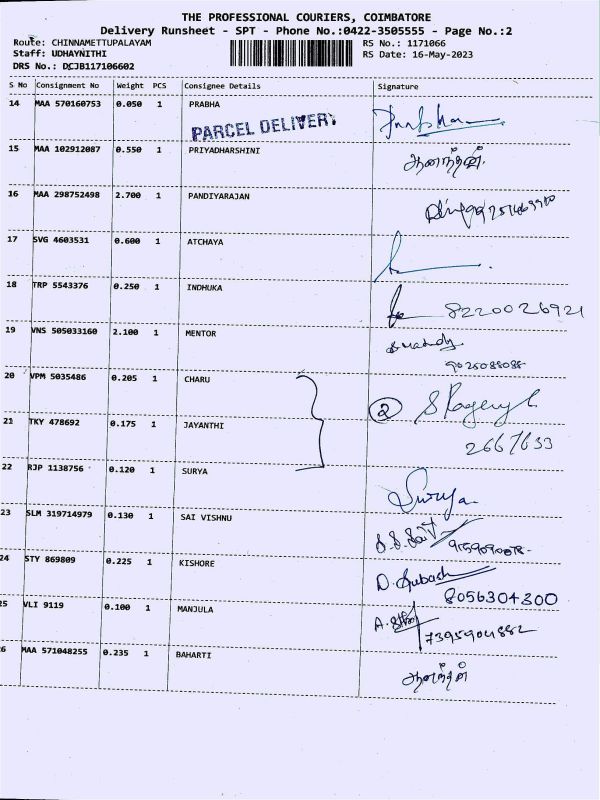 THE PROFESSIONAL COURIERS, COIMBATORE
Delivery Runsheet - SPT - Phone No.:0422-3505555 - Page No.:2
Route: CHINNAMETTUPALAYAM RS No.: 1171066
Staff: UDHAYNITHI RS Date: 16-May-2023
DRS No.: DCJB117106602
S No Consignment No Weight PCS Consignee Details Signature
14 MAA 570160753 0.050 1 PRABHA
PARCEL DELIVERY
15 MAA 102912087 0.550 1 PRIYADHARSHINI ஆனந்தன்.
16 MAA 298752498 2.700 1 PANDIYARAJAN
17 SVG 4603531 0.600 1 ATCHAYA
18 TRP 5543376 0.250 1 INDHUKA 8220026921
19 VNS 505033160 2.100 1 MENTOR
9025088088
20 VPM 5035486 0.205 1 CHARU 2
21 TKY 478692 0.175 1 JAYANTHI 2667633
22 RJP 1138756 0.120 1 SURYA Surya
23 SLM 319714979 0.130 1 SAI VISHNU
24 STY 869809 0.225 1 KISHORE D. Subash
8056304300
25 VLI 9119 0.100 1 MANJULA
7395904882
26 MAA 571048255 0.235 1 BAHARTI ஆனந்தன்